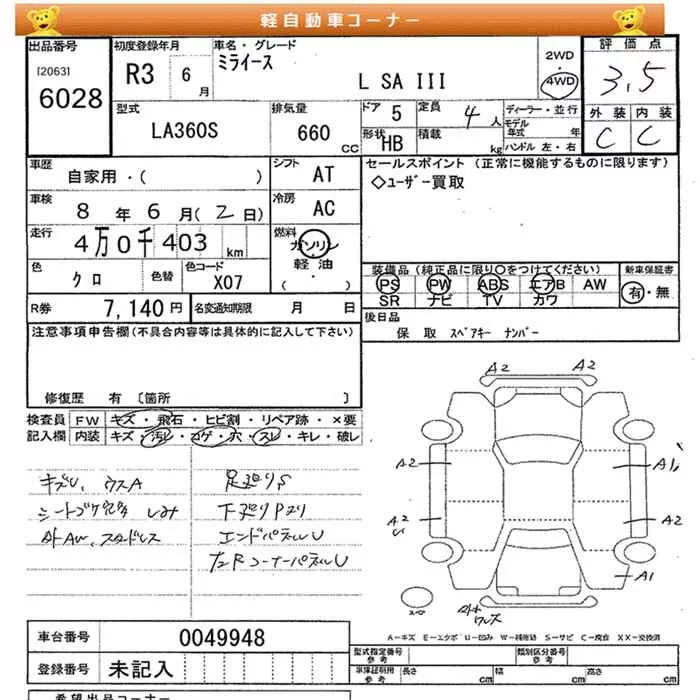 軽自動車コーナー
出品番号
[2063]
6028
初度登録年月
R3 6月
車名・グレード
ミライース
L SA III
2WD
・
4WD
評価点
3.5
外装 内装
C C
型式
LA360S
排気量
660 CC
ドア 5
定員 4人
形状 HB
積載 kg
ディーラー・並行
モデル年式 年
ハンドル 左・右
車歴
自家用・( )
シフト AT
車検
8年6月(2日)
冷房 AC
走行
4万0千403 km
燃料
ガソリン
軽油
・
( )
色
クロ
色替
色コード
X07
R券 7,140円
名変通知期限 月 日
セールスポイント (正常に機能するものに限ります)
◇ユーザー買取
装備品(純正品に限り〇をつけてください)
PS PW ABS エアB AW
SR ナビ TV カワ
新車保証書
有・無
後日品
保 取 スペアキー ナンバー
注意事項申告欄(不具合内容等は具体的に記入して下さい)
修復歴 有 〔箇所 〕
検査員
記入欄
FW キズ・飛石・ヒビ割・リペア跡・×要
内装 キズ・汚レ・コゲ・穴・スレ・キレ・破レ
キズU、ウスA
足廻りS
下廻りPヌリ
エンドパネルU
左RコーナーパネルU
A2 A2
A2
A2
A2
A1
A-キズ E-エクボ U-凹み W-補修跡 S-サビ C-腐食 XX-交換済
車台番号 0049948
登録番号 未記入
型式指定番号
参考
類別区分番号
参考
車庫証明用
参考
長さ cm
幅 cm
高さ cm
希望出品コーナー